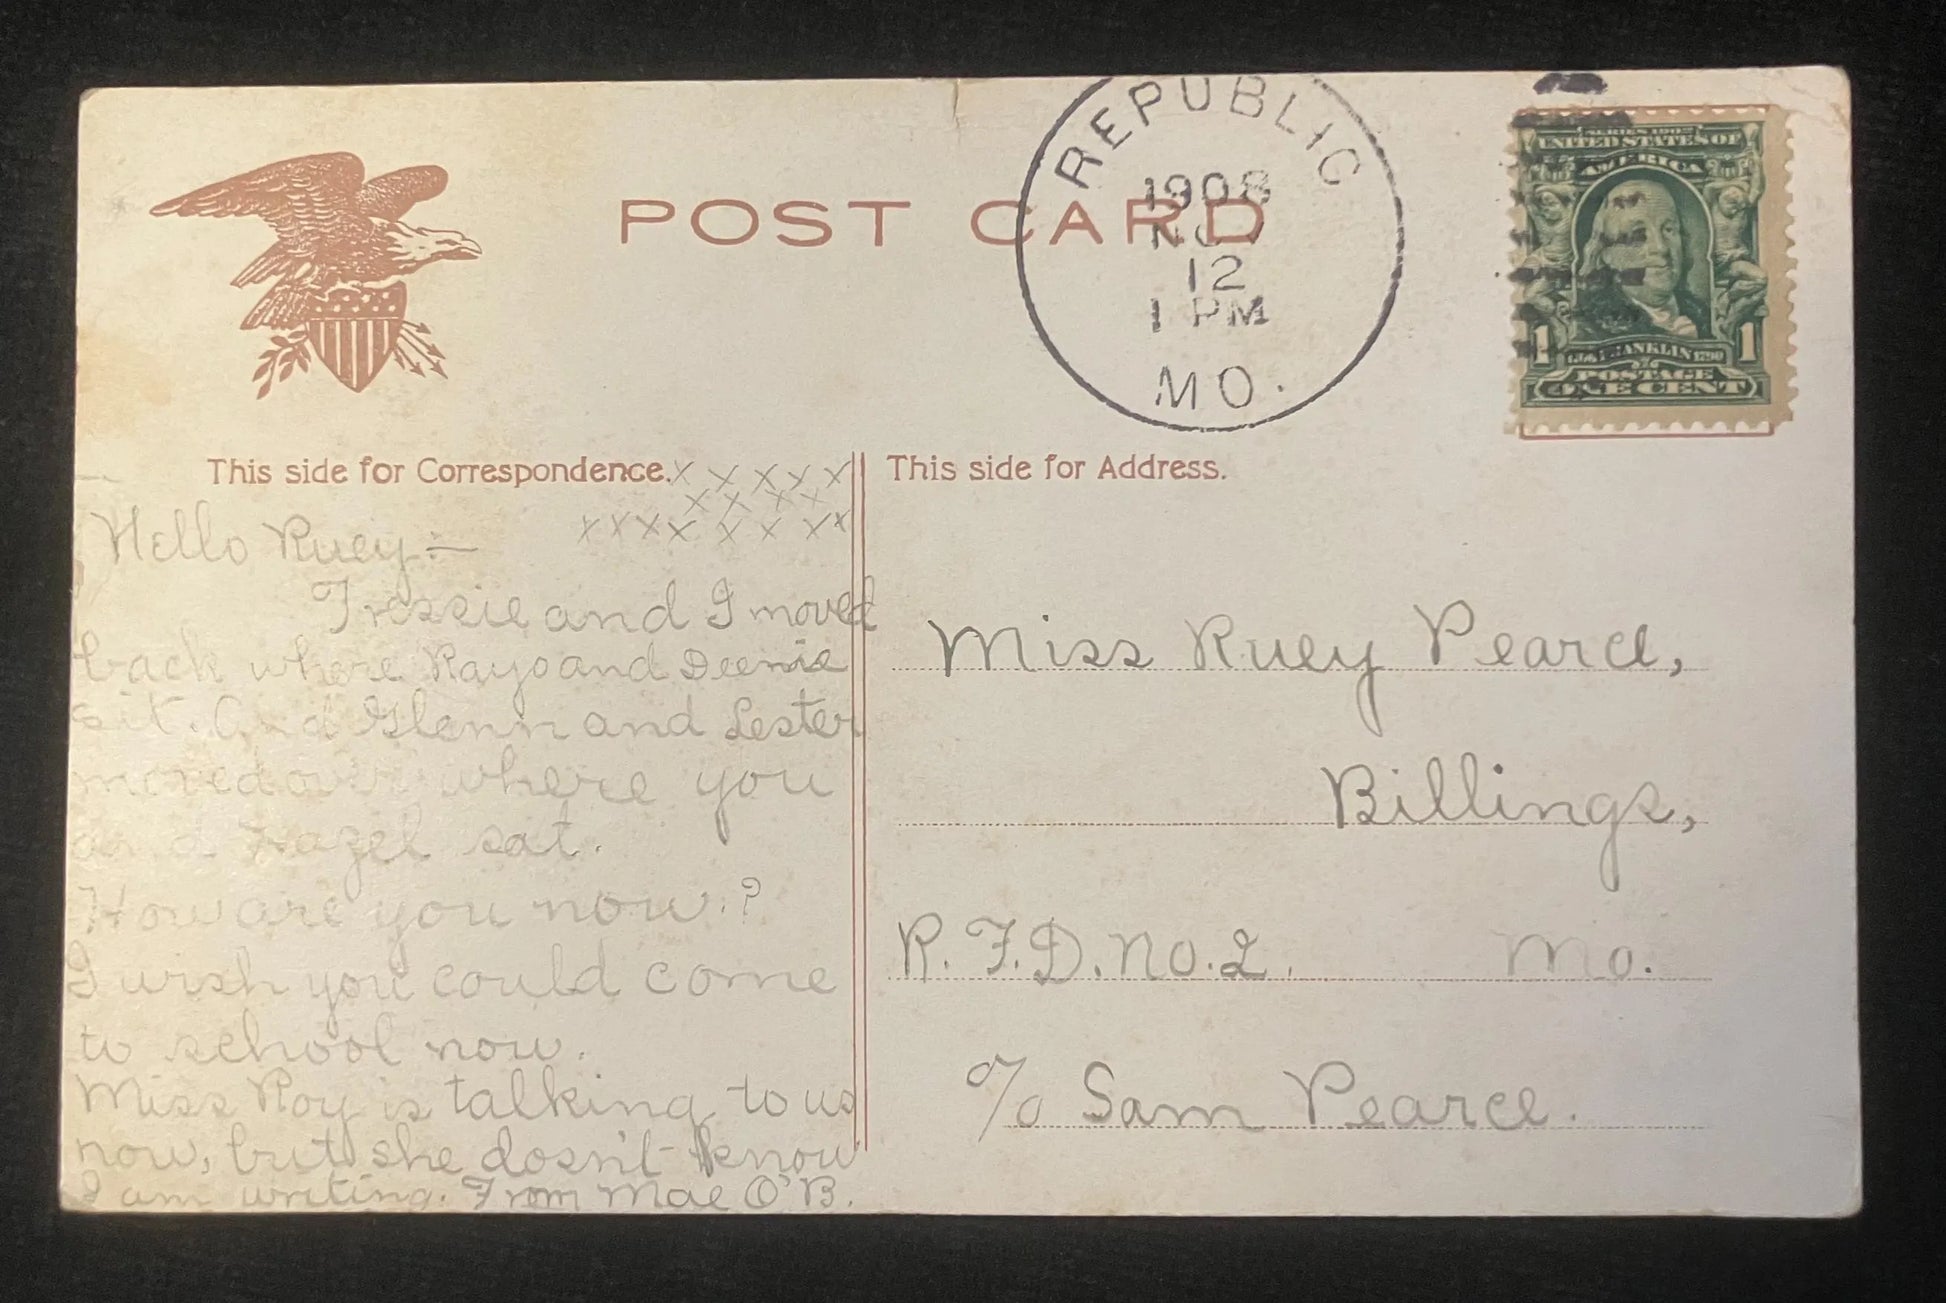 POST CARD
REPUBLIC
1908
NOV
12
1 PM
MO.
SERIES 1902
UNITED STATES OF
AMERICA
1 1
1706 FRANKLIN 1790
POSTAGE
ONE CENT
This side for Correspondence.
x x x x x
x x x x
x x x x x x x x
Hello Ruey:—
Tressie and I moved
back where Rayo and Deenie
sit. And Glenn and Lester
moved over where you
and Hazel sat.
How are you now?
I wish you could come
to school now.
Miss Roy is talking to us
now, but she dosn't know
I am writing. From Mae O'B.
This side for Address.
Miss Ruey Pearce,
Billings,
R. F. D. No. 2. Mo.
c/o Sam Pearce.